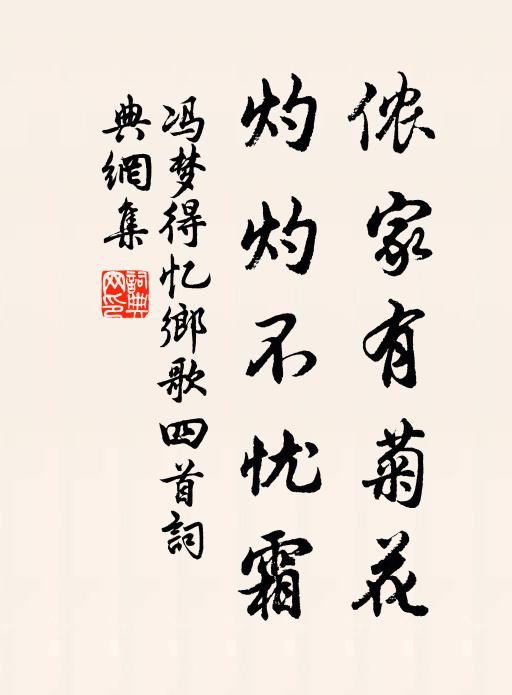 侬家有菊花
灼灼不忧霜
冯梦得忆鄉歌四首詞
典網集
詞典
网印